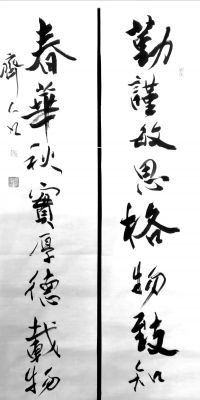 勤謹敏思格物致知
春華秋實厚德載物